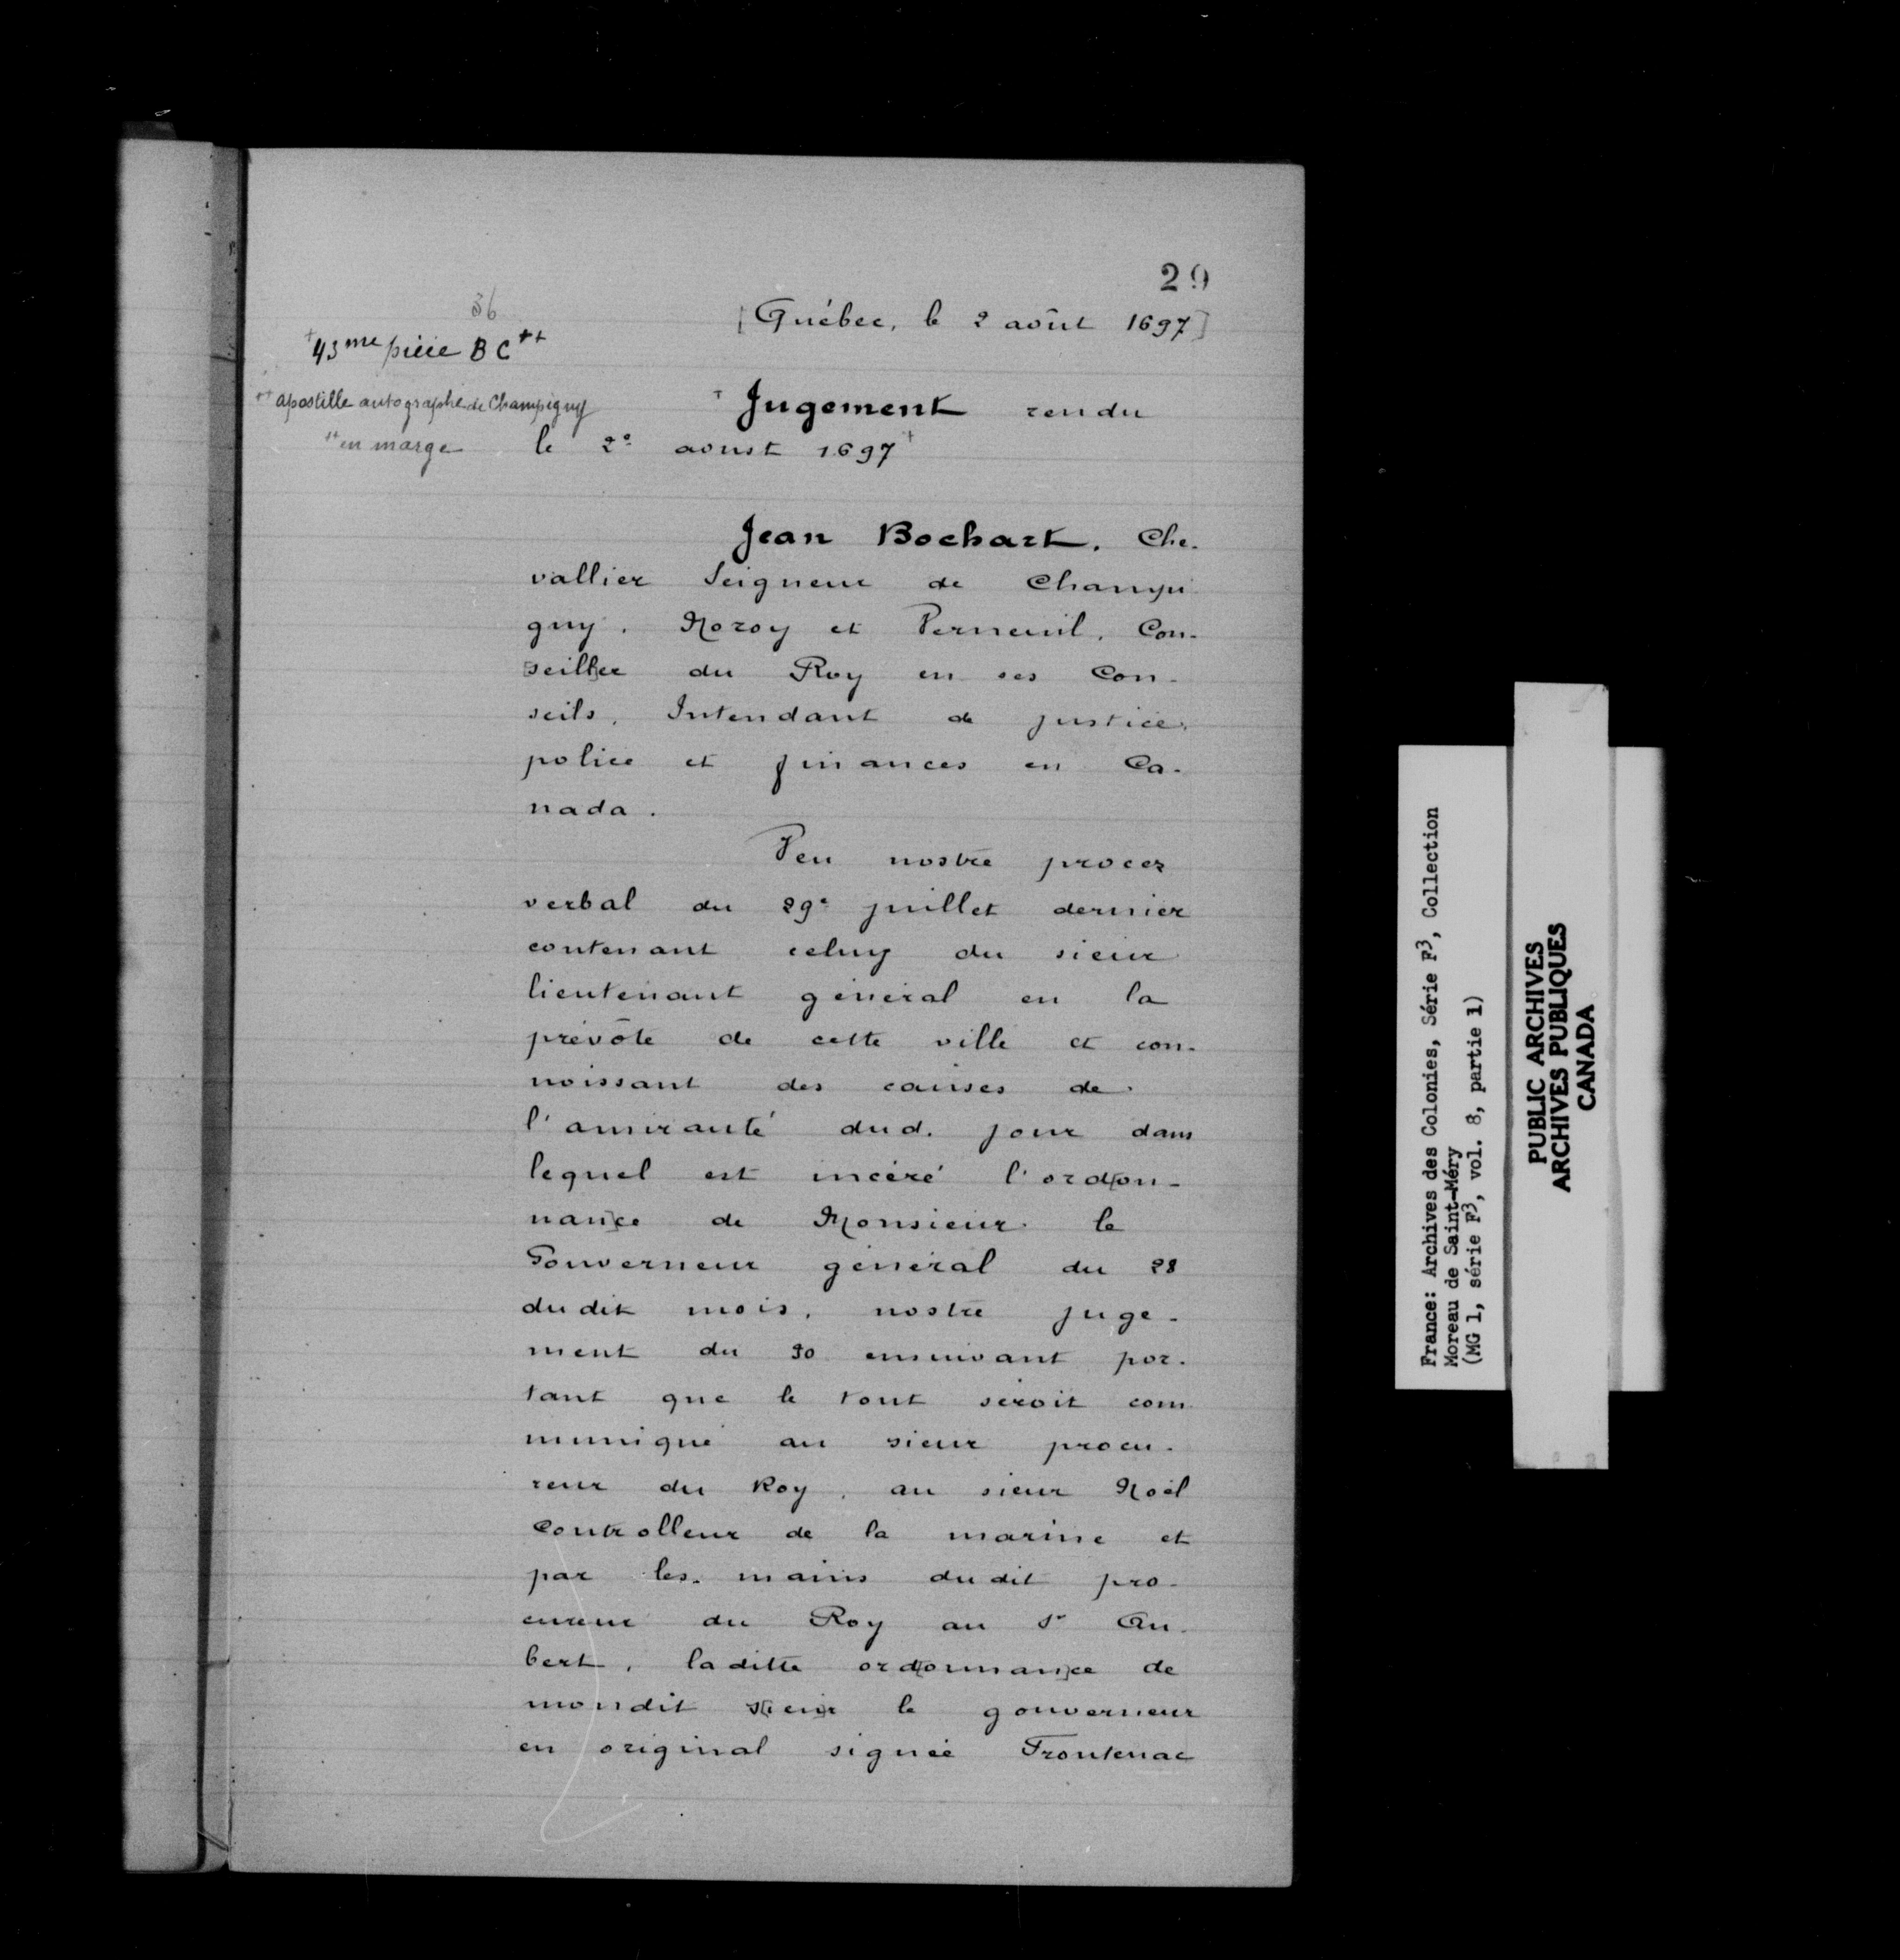 29
36
[Québec, le 2 août 1697]
+43me pièce BC++
++ apostille autographe de Champigny
++ en marge
+ Jugement rendu
le 2e aoust 1697+
Jean Bochart, Che-
vallier Seigneur de Champi
gny, Noroy et Verneuil, Con-
seiller du Roy en ses Con-
seils, Intendant de justice,
police et finances en Ca-
nada.
Veu nostre procez
verbal du 29e juillet dernier
contenant celuy du sieur
lieutenant général en la
prévôté de cette ville et con-
noissant des causes de
l'amirauté dud. jour dans
lequel est inceré l'ordon-
nance de Monsieur le
Gouverneur général du 28
dudit mois, nostre juge-
ment du 30 ensuivant por-
tant que le tout seroit com
muniqué au sieur procu-
reur du Roy, au sieur Noël
Controlleur de la marine et
par les mains dudit pro-
cureur du Roy au Sr Au-
bert, laditte ordonnance de
mondit sieur le gouverneur
en original signée Frontenac
France: Archives des Colonies, Série F3, Collection
Moreau de Saint-Méry
(MG 1, série F3, vol. 8, partie 1)
PUBLIC ARCHIVES
ARCHIVES PUBLIQUES
CANADA